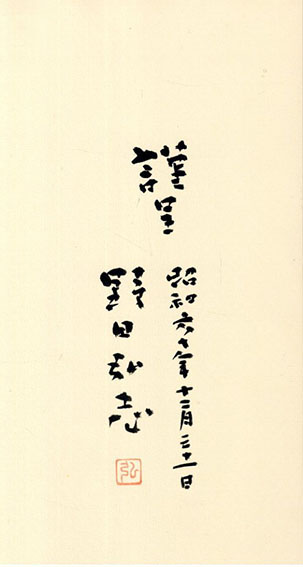 謹呈
昭和六十年十二月三十一日
野田弘志
弘